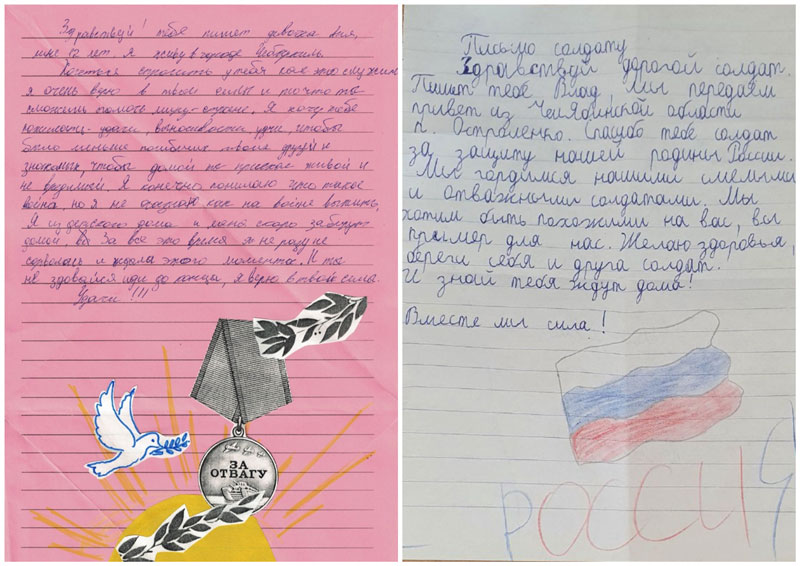 Здравствуй! тебе пишет девочка
мне 12 лет. Я живу в городе Чебаркуль.
Хочеться спросить у тебя как это служить
я очень верю в твои силы и то что ты
сможешь помочь миру-стране. Я хочу тебе
пожелать удачи, выносливости удачи, чтобы
было меньше погибших твоих друзей и
знакомых, чтобы домой ты приехал живой и
не вредимый. Я конечно понимаю что такое
война, но я не осознаю как на войне выжить.
Я из детского дома и меня скоро заберут
домой. За всё это время я не разу не
сорвалась и ждала этого момента. И ты
не здавайся иди до конца, я верю в твои силы.
Удачи!!!
ЗА
ОТВАГУ
Письмо солдату
Здравствуй, дорогой солдат.
Пишет тебе Влад, мы передаём
привет из Челябинской области
п. Остроленко. Спасибо тебе солдат
за защиту нашей родины России.
Мы гордимся нашими смелыми
и отважными солдатами. Мы
хотим быть похожими на вас, вы
пример для нас. Желаю здоровья,
береги себя и друга солдат.
И знай тебя ждут дома!
Вместе мы сила!
РОССИЯ